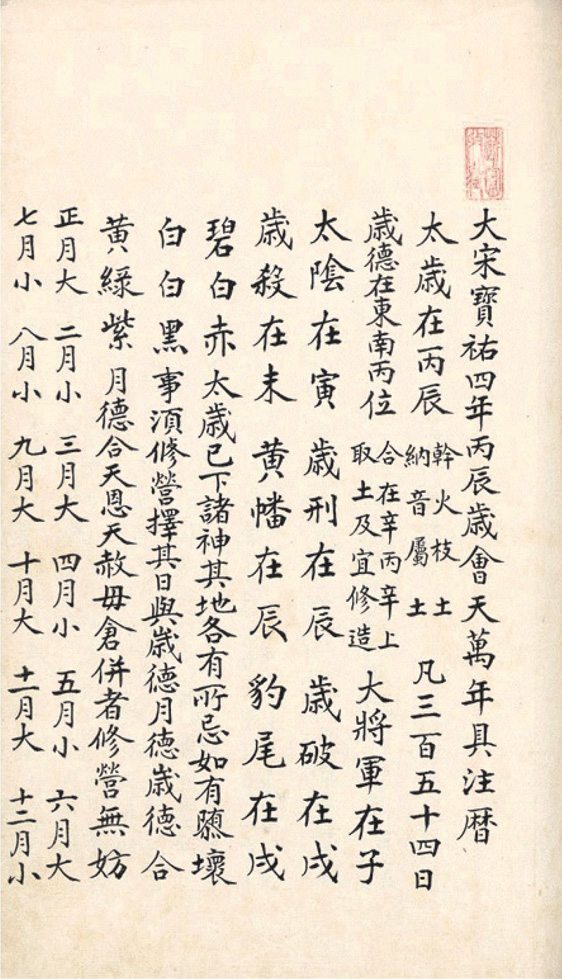 大宋寶祐四年丙辰歳會天萬年具注暦
太歳在丙辰 幹火枝土 納音屬土 凡三百五十四日
歳德在東南丙位 合在辛丙辛上 取土及宜修造 大將軍在子
太陰在寅 歳刑在辰 歳破在戌
歳殺在未 黄幡在辰 豹尾在戌
碧白赤 太歳已下諸神其地各有所忌如有隳壞
白白黑 事須修營擇其日與歳德月德歳德合
黄綠紫 月德合天恩天赦毋倉併者修營無妨
正月大 二月小 三月大 四月小 五月小 六月大
七月小 八月小 九月大 十月大 十一月大 十二月小